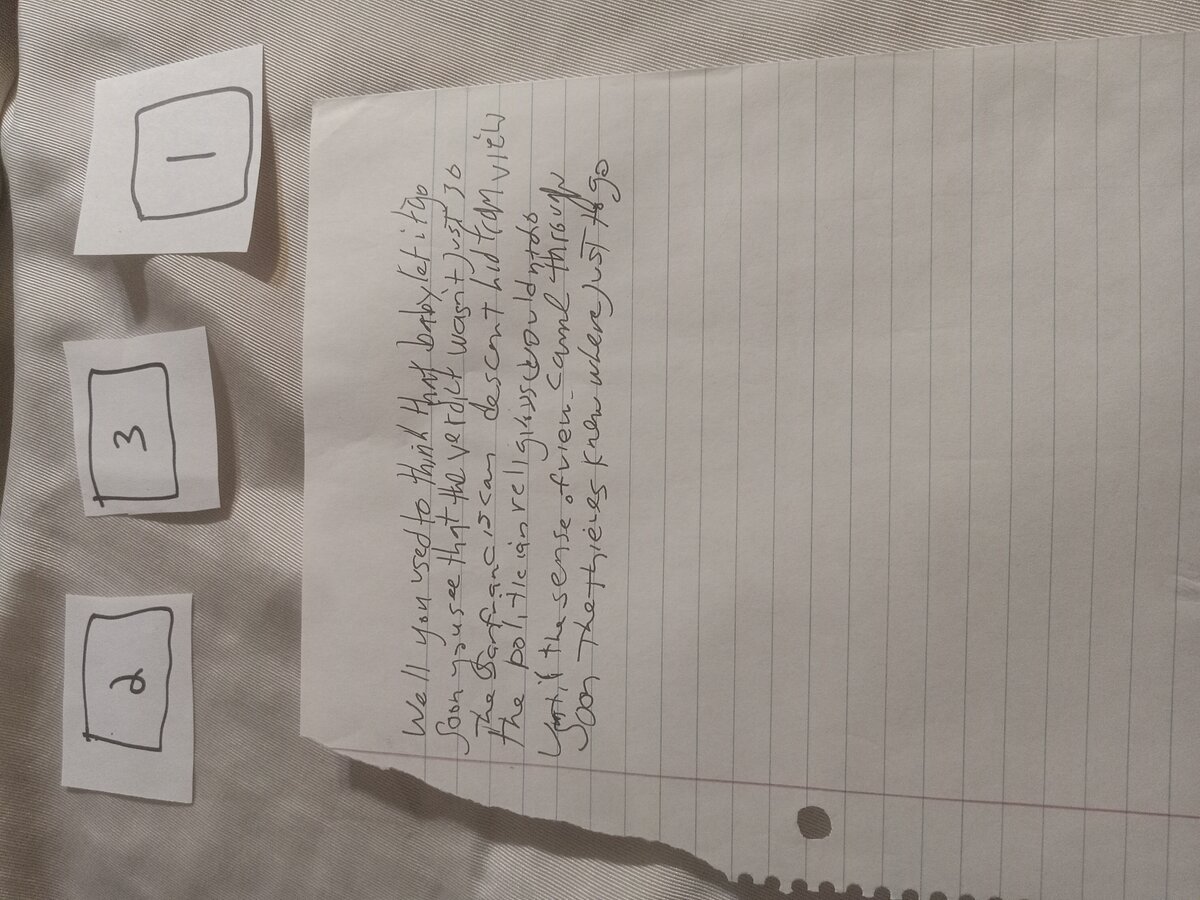 2 3 1
Well you used to think that baby let it go
Soon you see that the verdict wasn't just so
The Sanfranciscan descent hid from view
the politician religious wouldn't do
Until the sense of view came through
Soon The thieves knew where just to go